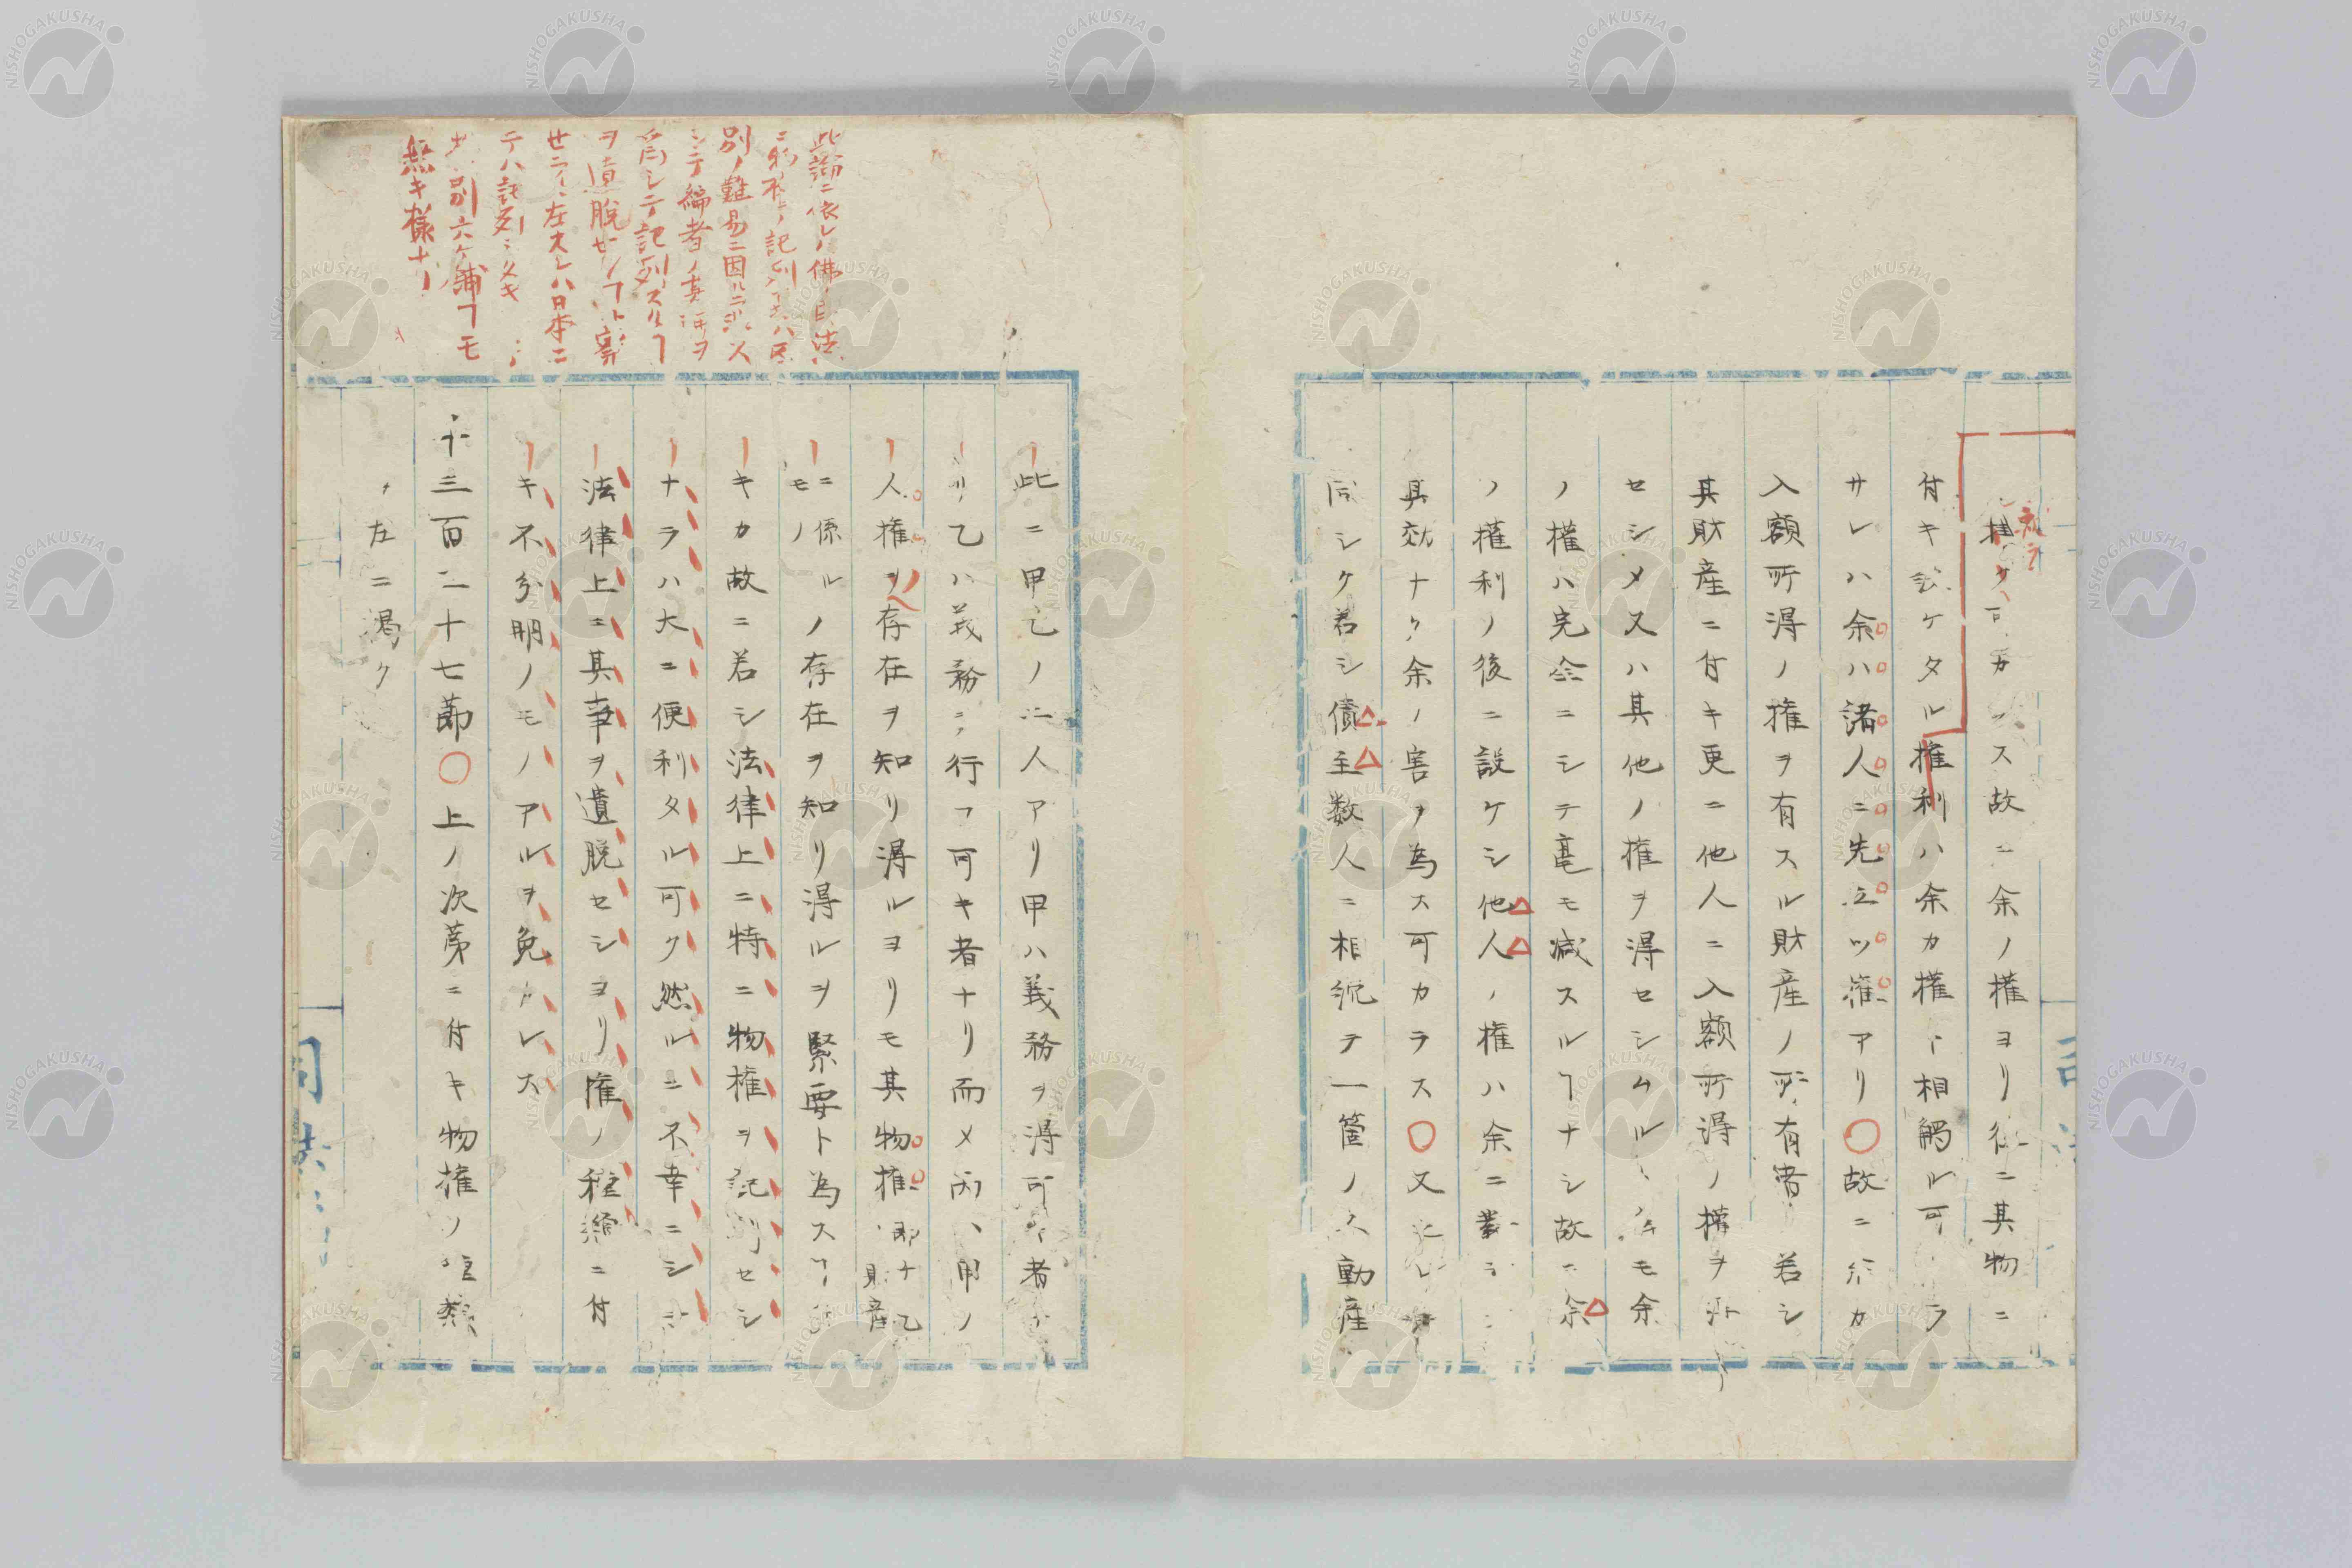 ス故ニ余ノ権ヨリ後ニ其物ニ
付キ設ケタル権利ハ余カ権ト相觸ル可
サレハ余ハ諸人ニ先立ツ権アリ〇故ニ余カ
入額所得ノ権ヲ有スル財産ノ所有者若シ
其財産ニ付キ更ニ他人ニ入額所得ノ権ヲ
セシメ又ハ其他ノ権ヲ得セシムルモ余
ノ権ハ完全ニシテ毫モ減スルヿナシ故ニ余
ノ権利ノ後ニ設ケシ他人ノ権ハ余ニ對シ
其効ナク余ノ害ヲ為ス可カラス〇又
同シク若シ債主数人ニ相続テ一箇ノ不動産
此ニ甲乙ノ二人アリ甲ハ義務ヲ得可キ者
リ乙ハ義務ヲ行フ可キ者ナリ而メ丙ハ甲ノ
人権ノ存在ヲ知リ得ルヨリモ其物権即ナ乙財産
ニ係ルモノノ存在ヲ知リ得ルヲ緊要ト為スヿ
キカ故ニ若シ法律上ニ特ニ物権ヲ記列セシ
ナラハ大ニ便利タル可ク然ルニ不幸ニシ
法律上ニ其事ヲ遺脱セシヨリ権ノ種類ニ付
キ不分明ノモノアルヲ免カレス
千三百二十七節〇上ノ次第ニ付キ物権ノ種類
左ニ渇ク
此論ニ依レハ佛ノ民法
別ノ難易ニ因ルニ非ス
シテ編者ノ其
為シテ記列スルヿ
ヲ遺脱セ
左スレハ日本ニ
テハ記列
別六ケ鋪フモ
無キ様ナリ
NISHOGAKUSHA